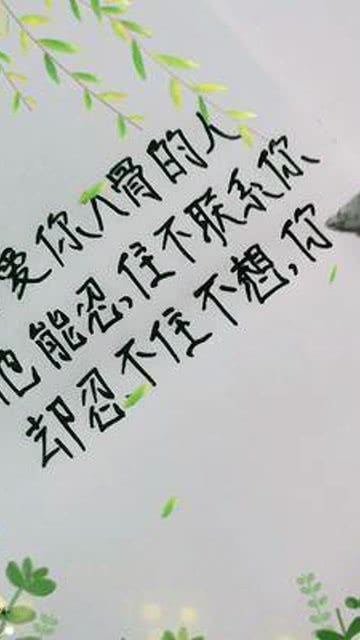 爱你入骨的人
他能忍住不联系你
却忍不住不想你